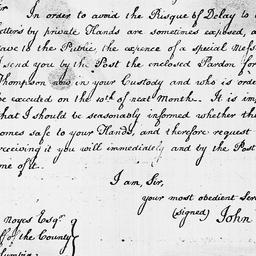 Sir
In order to avoid the Risque of Delay to
letters by private Hands are sometimes exposed, a
save to the Public the expence of a special Mess
send you by the Post the enclosed Pardon for
Thompson now in your Custody and who is orde
be executed on the 10th of next Month. It is im
that I should be seasonably informed whether th
comes safe to your Hands, and therefore request
receiving it you will immediately and by the Post
me of it.
I am, Sir,
your most obedient Ser
(signed) John
Noyes Esqr.
ff of the County
lumbia